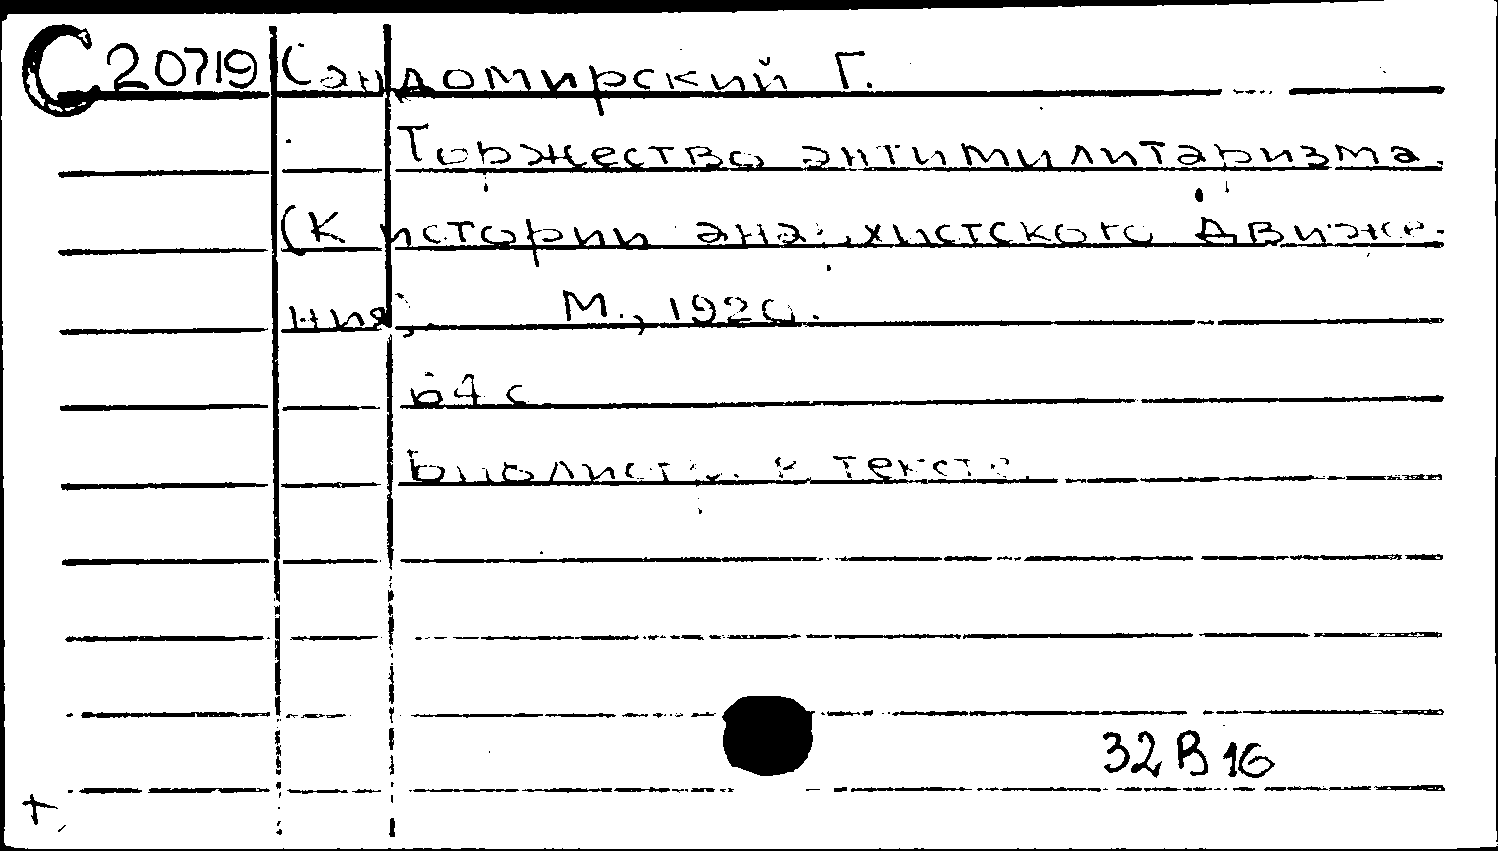 С20719 Сандомирский Г.
Торжество антимилитаризма.
(К истории анархистского движе-
ния). М., 1920.
64 с.
Библиогр. в тексте.
32 В 16
+